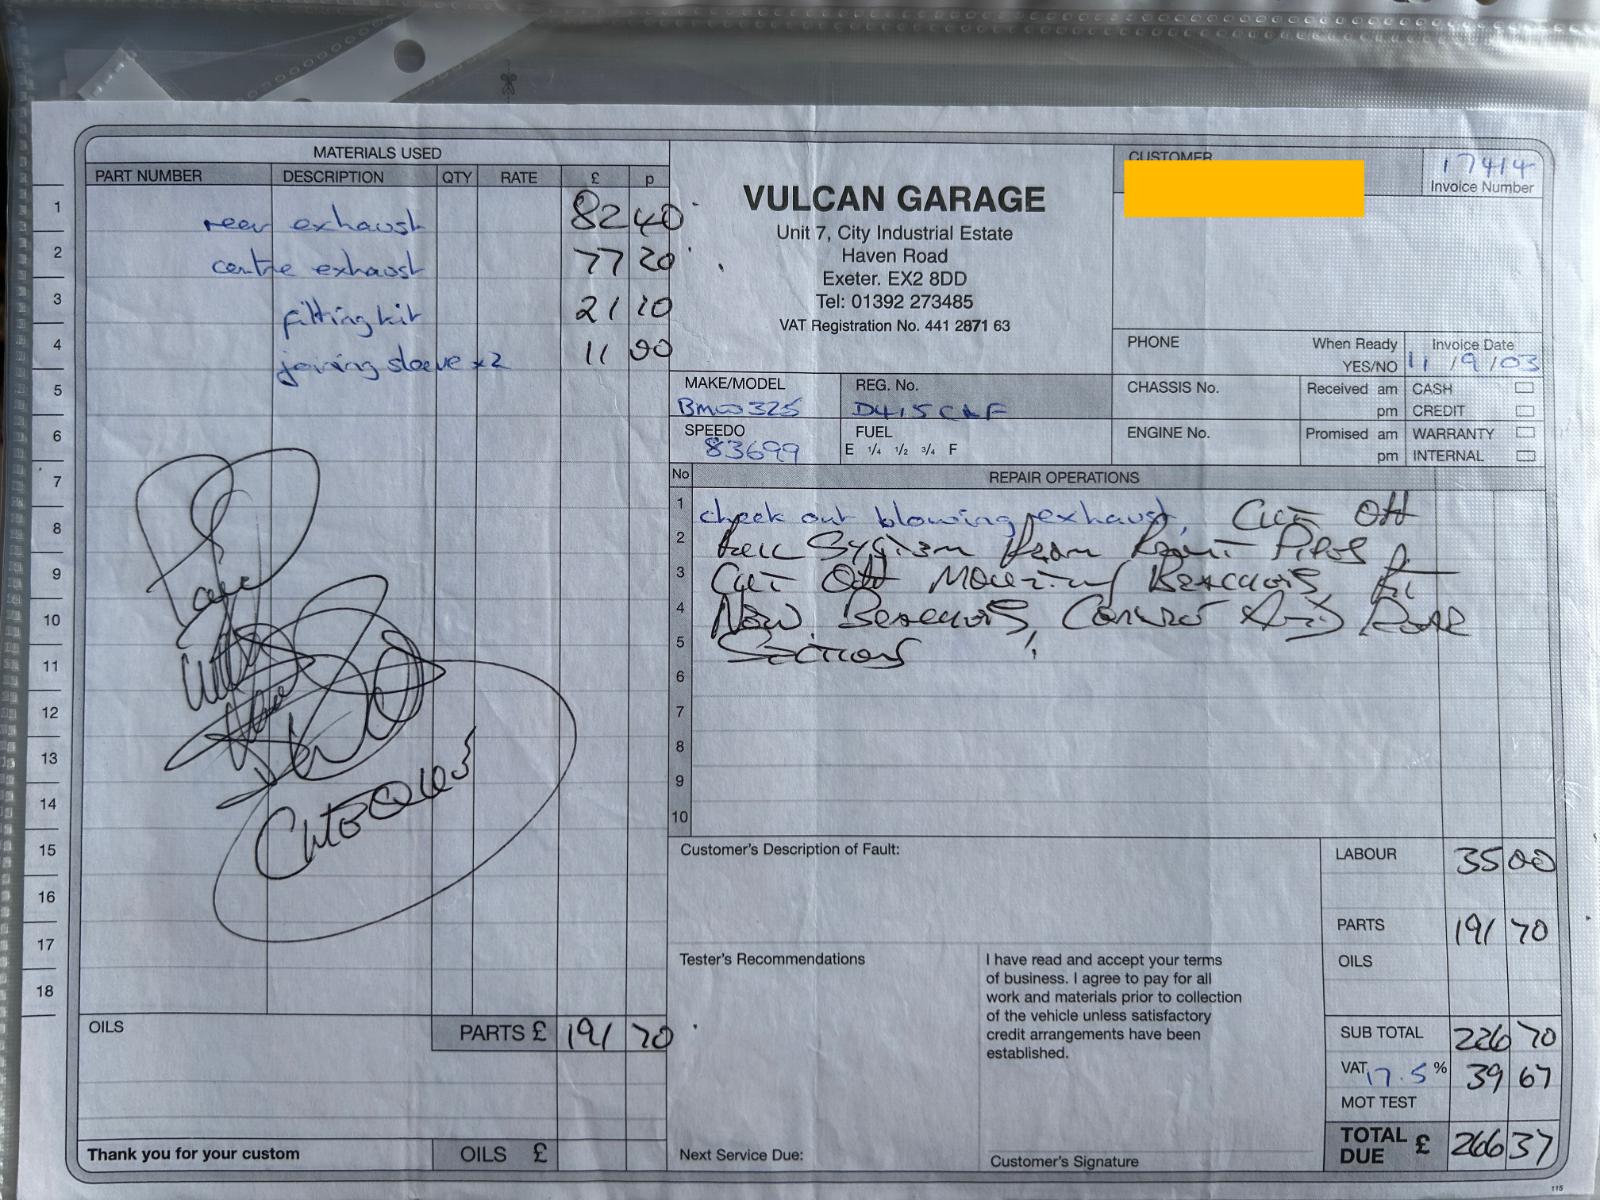 MATERIALS USED
PART NUMBER DESCRIPTION QTY RATE £ p
1 rear exhaust 82 40
2 centre exhaust 77 20
3 fitting kit 21 10
4 joining sleeve x2 11 00
5
6
7
8
9
10
11
12
13
14
15
16
17
18
Paid
with
CHEQUE
OILS
PARTS £ 191 70
Thank you for your custom
OILS £
VULCAN GARAGE
Unit 7, City Industrial Estate
Haven Road
Exeter. EX2 8DD
Tel: 01392 273485
VAT Registration No. 441 2871 63
CUSTOMER
17414
Invoice Number
PHONE
When Ready
YES/NO
Invoice Date
11/9/03
MAKE/MODEL
BMW 325
REG. No.
D415 CLF
SPEEDO
83699
FUEL
E 1/4 1/2 3/4 F
CHASSIS No.
Received am
pm
CASH
CREDIT
ENGINE No.
Promised am
pm
WARRANTY
INTERNAL
No REPAIR OPERATIONS
1 check out blowing exhaust, Cut Off
2 System From Front Pipes
3 Cut Off Mounting Brackets, Fit
4 New Brackets, Centre And Rear
5 Sections
6
7
8
9
10
Customer's Description of Fault:
Tester's Recommendations
Next Service Due:
I have read and accept your terms
of business. I agree to pay for all
work and materials prior to collection
of the vehicle unless satisfactory
credit arrangements have been
established.
Customer's Signature
LABOUR 35 00
PARTS 191 70
OILS
SUB TOTAL 226 70
VAT 17.5 % 39 67
MOT TEST
TOTAL DUE £ 266 37
115